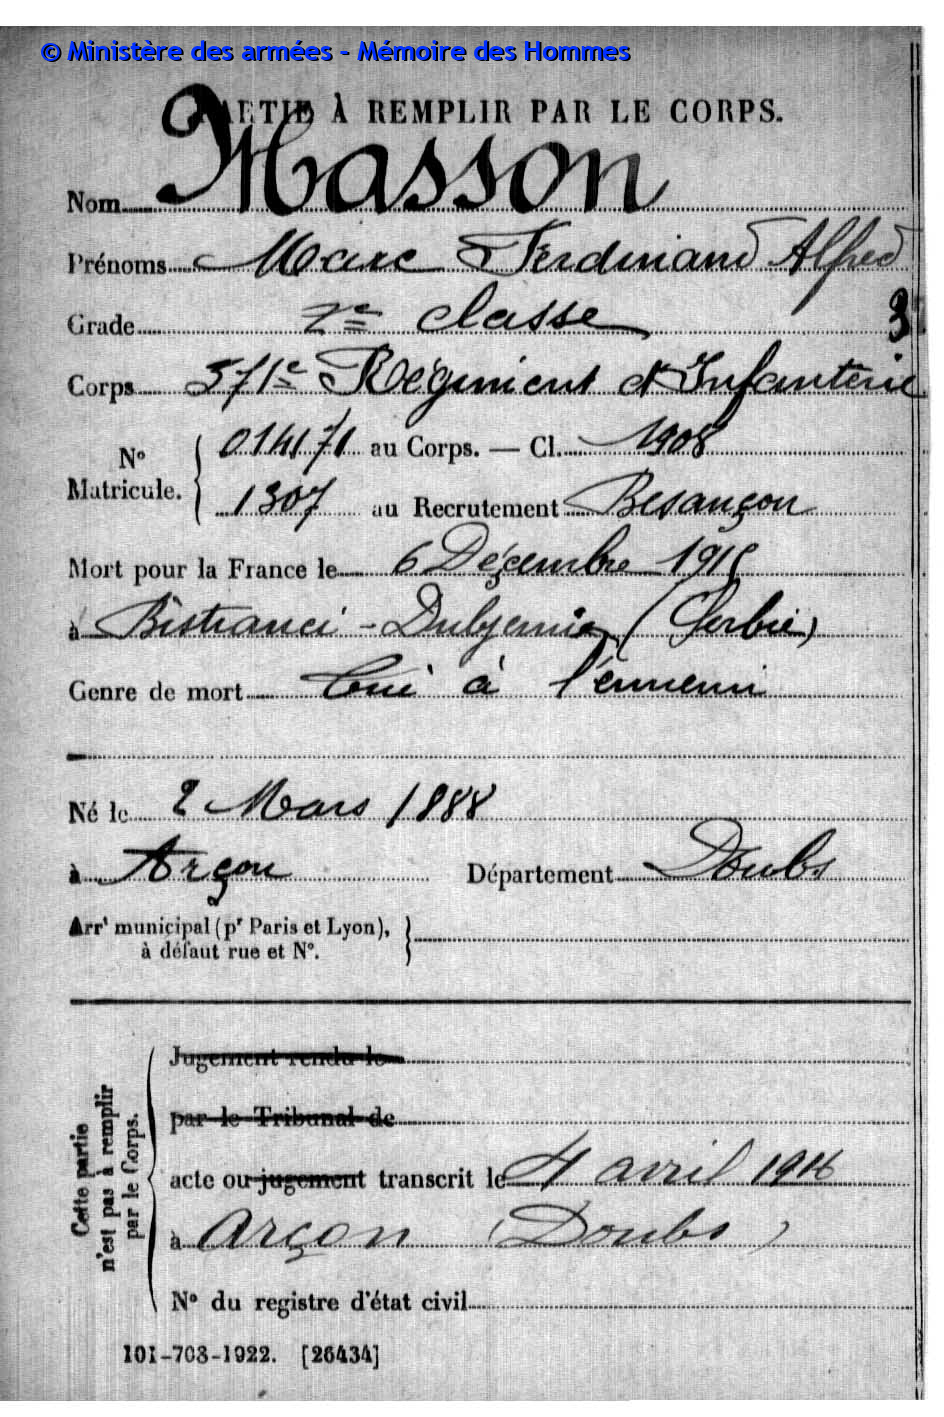 © Ministère des armées - Mémoire des Hommes
PARTIE À REMPLIR PAR LE CORPS.
Nom Masson
Prénoms Marc Ferdinand Alfred
Grade 2e classe
3
Corps 371e Régiment d'Infanterie
No Matricule. { 014171 au Corps. — Cl. 1908
1307 au Recrutement Besançon
Mort pour la France le 6 Décembre 1915
à Bistranci - (Serbie)
Genre de mort Tué à l'ennemi
Né le 2 Mars 1888
à Arçon Département Doubs
Arrt municipal (pr Paris et Lyon),
à défaut rue et No.
Cette partie
n'est pas à remplir
par le Corps.
Jugement rendu le
par le Tribunal de
acte ou jugement transcrit le 4 avril 1916
à Arçon (Doubs)
No du registre d'état civil
101-703-1922. [26434]